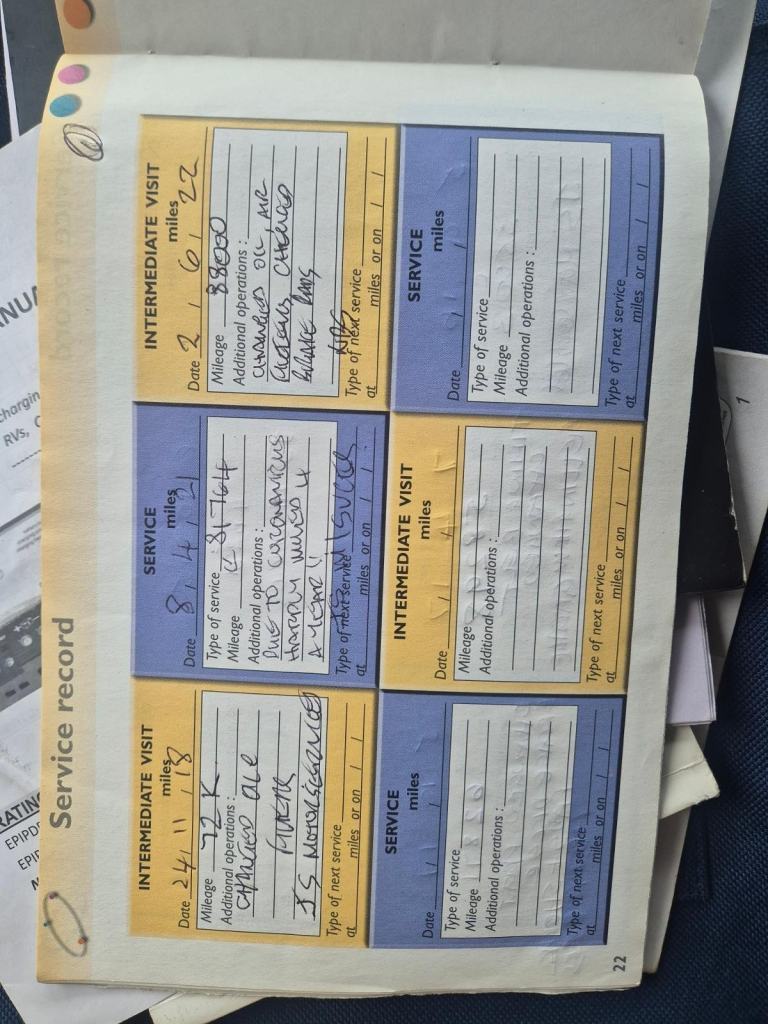 Service record
INTERMEDIATE VISIT
miles
Date 24 / 11 / 18
Mileage 72K
Additional operations :
CHANGED OLE
FILTER
JS MOTOR SERVICES
Type of next service
at miles or on / /
SERVICE
miles
Date 8 / 4 / 21
Type of service
Mileage 81764
Additional operations :
DUE TO CORONAVIRUS
HARDLY MOVED 4
A YEAR !!
Type of next service
at miles or on / /
INTERMEDIATE VISIT
miles
Date 2 / 6 / 22
Mileage 88000
Additional operations :
CHANGED OIL, AIR
CHECKED
BRAKE PADS
Type of next service
at miles or on / /
SERVICE
miles
Date / /
Type of service
Mileage
Additional operations :
Type of next service
at miles or on / /
INTERMEDIATE VISIT
miles
Date / /
Mileage
Additional operations :
Type of next service
at miles or on / /
SERVICE
miles
Date / /
Type of service
Mileage
Additional operations :
Type of next service
at miles or on / /
22
ANUA
chargin
RVs, C
RATING
EPIPD
EPIP
1